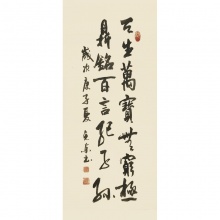 天生萬寶無窮極
鼎銘百言紀子孫
歲次庚子夏書